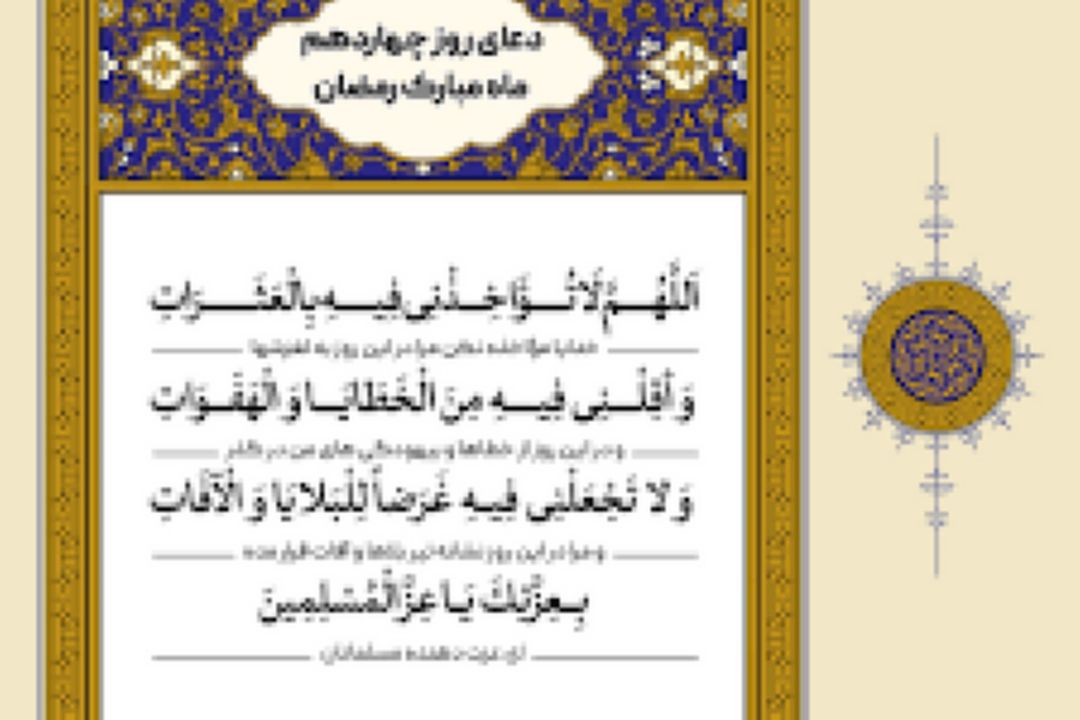 دعای روز چهاردهم
ماه مبارک رمضان
اَللّهُمَّ لاتُؤاخِذْنی فیهِ بِالْعَثَراتِ
خدایا مؤاخذه نکن مرا در این روز به لغزشها
وَ اَقِلْنی فیهِ مِنَ الْخَطایا وَ الْهَفَواتِ
و در این روز از خطاها و بیهودگی های من در گذر
وَ لا تَجْعَلْنی فیهِ غَرَضاً لِلْبَلایا وَ الْآفاتِ
و مرا در این روز نشانه تیر بلاها و آفات قرار مده
بِعِزَّتِکَ یا عِزَّالْمُسْلِمینَ
ای عزت دهنده مسلمانان